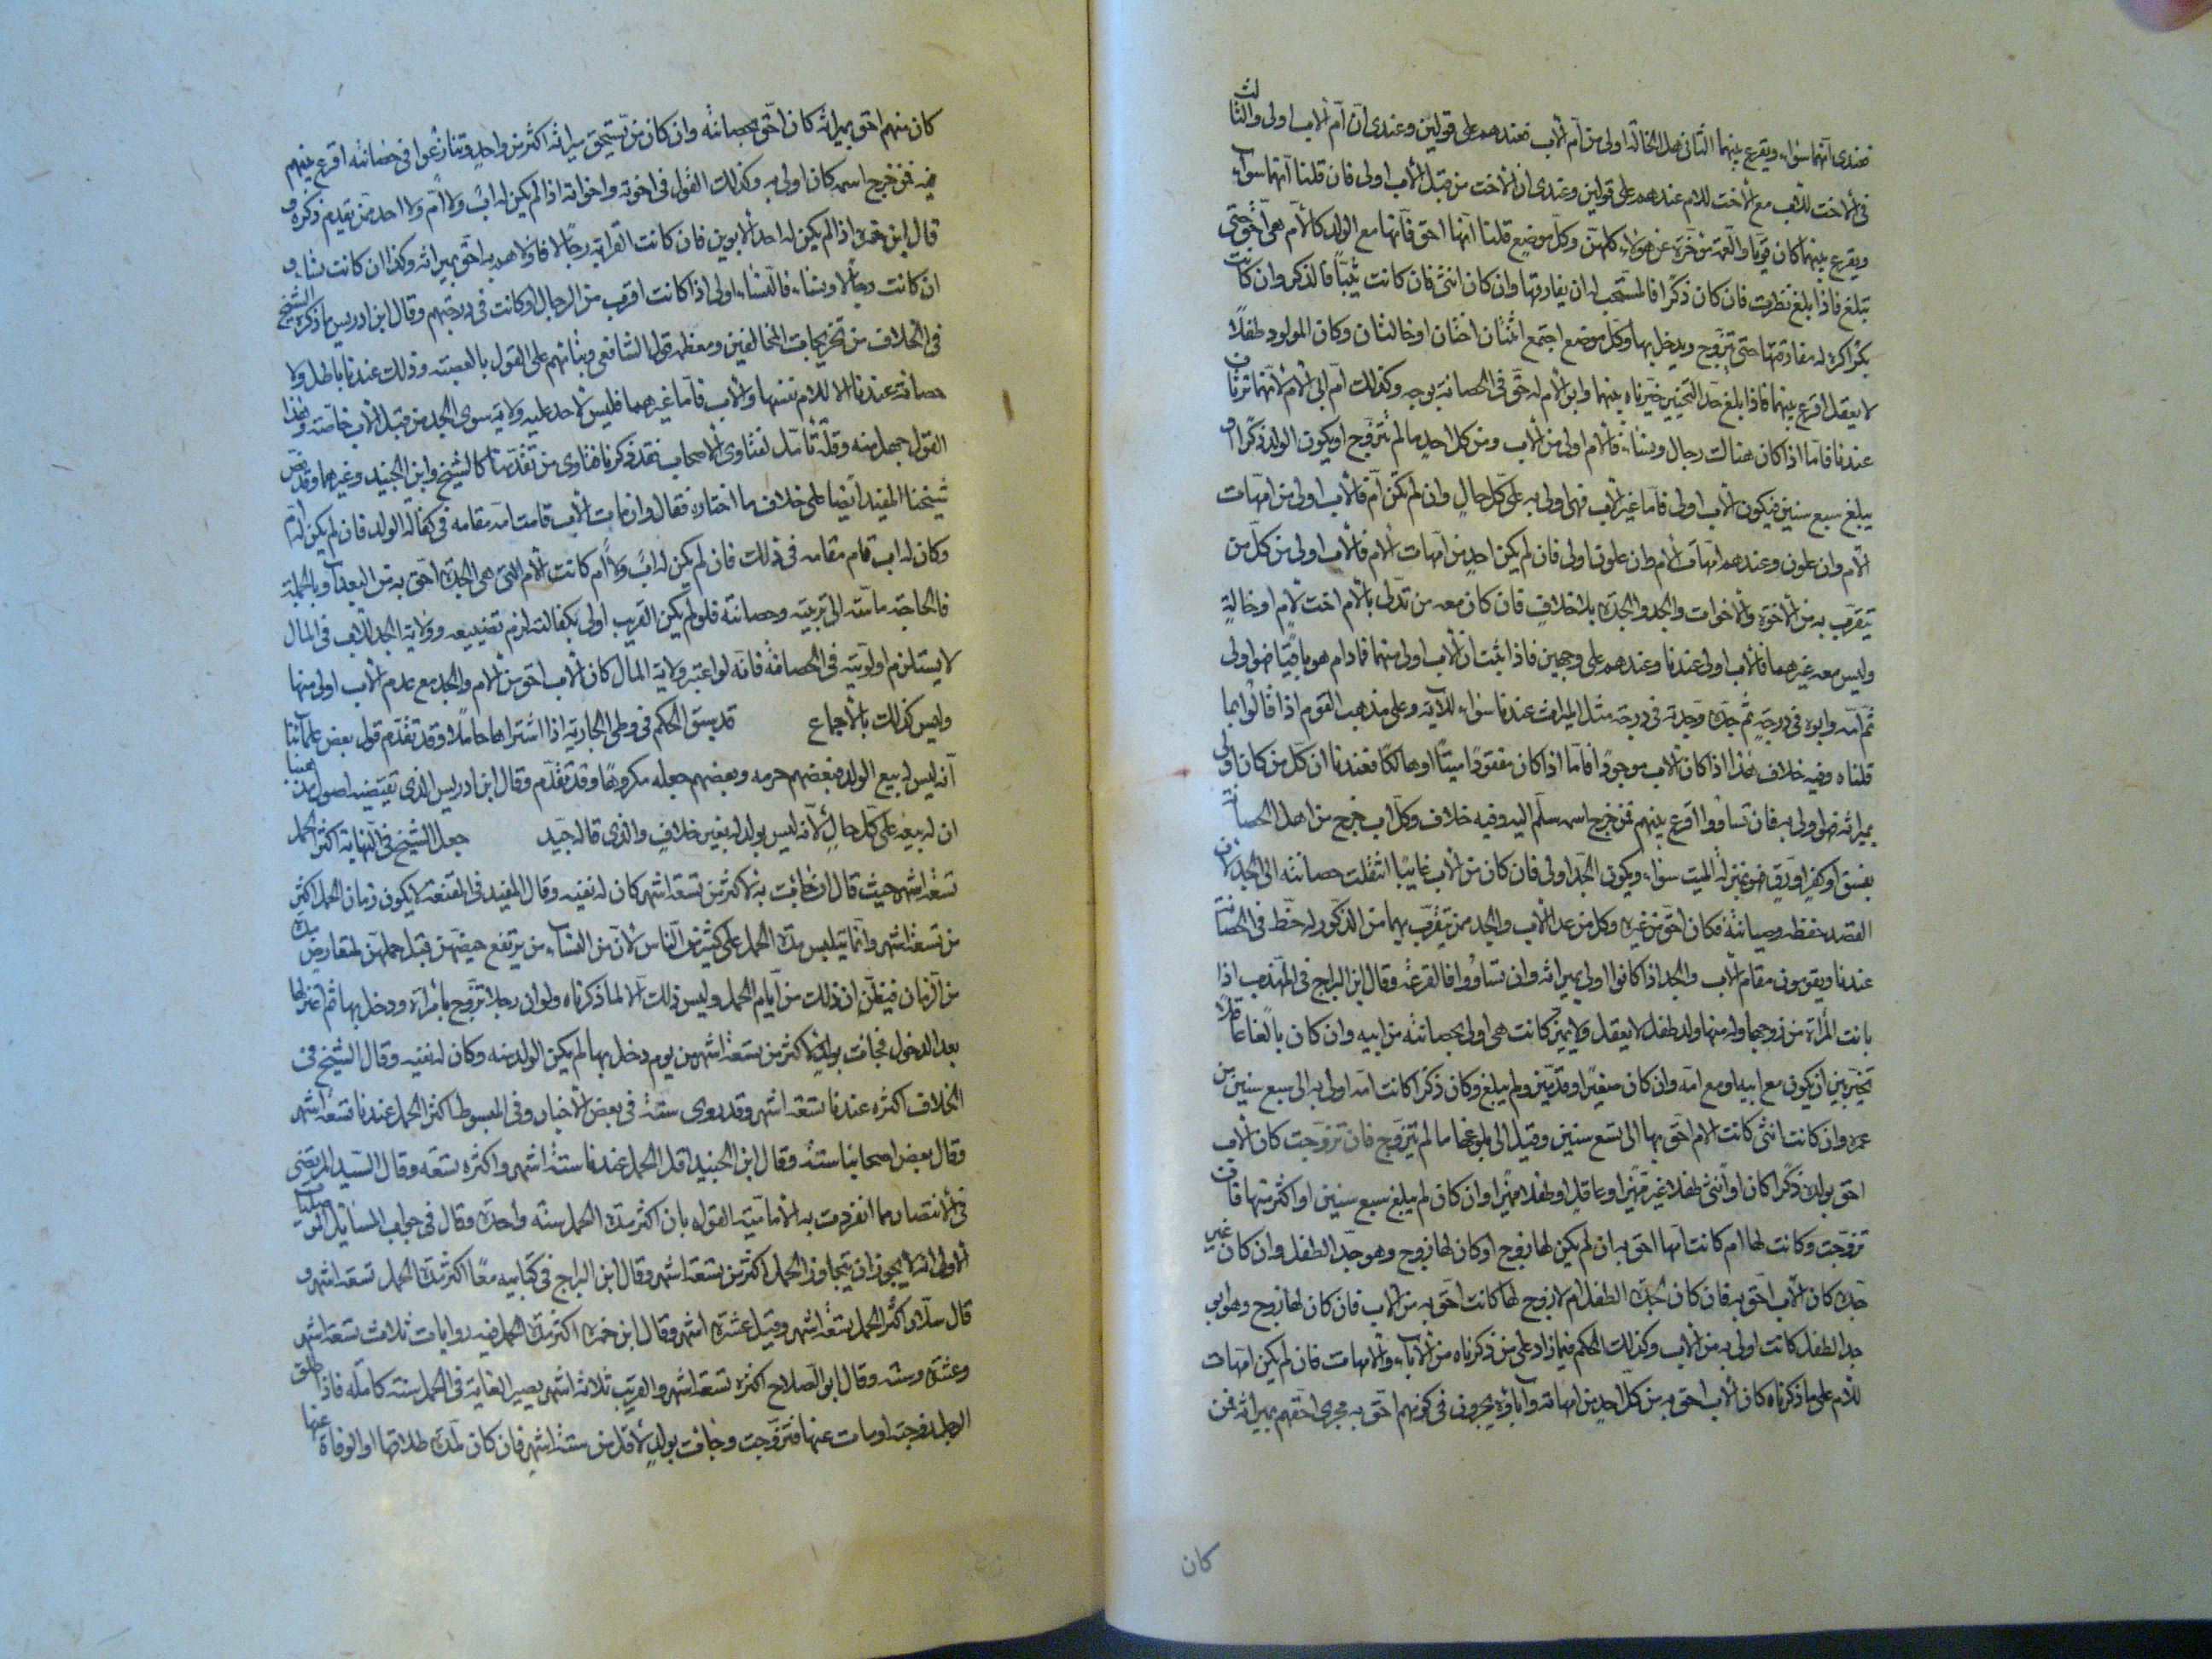 فعندى انهما سواء ويقرع بينهما الثانى هل الخالة اولى من ام الاب فعندهم على قولين وعندى ان ام الاب اولى والثالث
فى الاخت للاب مع الاخت للام عندهم على قولين وعندى ان الاخت من قبل الاب اولى فان قلنا انهما سواء
ويقرع بينهما كان قويا والعمة مؤخرة عن هؤلاء كلهن وكل موضع قلنا انها احق فانها مع الولد كالام هى احق حتى
تبلغ فاذا بلغ نظرت فان كان ذكرا فالمستحب له ان يفارقها وان كان انثى فان كانت ثيبا فالذكر وان كانت
بكرا كره له مفارقتها حتى تتزوج ويدخل بها وكل موضع اجتمع اثنتان اختان او خالتان وكان المولود طفلا
لا يعقل اقرع بينهما فاذا بلغ حد التخيير خيرناه بينهما وابو الام له حق فى الحضانة بوجه وكذلك ام ابى الام لانهما ترثان
عندنا فاما اذا كان هنالك رجال ونساء فالام اولى من الاب ومن كل احد ما لم تتزوج او يكون الولد ذكرا او
يبلغ سبع سنين فيكون الاب اولى فاما غير الاب فهى اولى به على كل حال وان لم تكن ام فالاب اولى من امهات
الام وان علون وعندهم امهات الام وان علون اولى فان لم يكن احد من امهات الام فالاب اولى من كل من
يتقرب به من الاخوة والاخوات والجد والجدة بلا خلاف فان كان معه من تدلى بالام اخت لام او خالة
وليس معه غيرهما فالاب اولى عندنا وعندهم على وجهين فاذا ثبت ان الاب اولى منهما فما دام هو باقيا فهو اولى
ثم امه وابوه فى درجة ثم جده وجدته فى درجة مثل الميراث عندنا سواء للاية وعلى مذهب القوم اذا قالوا بما
قلناه وفيه خلاف هذا اذا كان الاب موجودا فاما اذا كان مفقودا ميتا او هالكا فعندنا ان كل من كان اولى
بميراثه فهو اولى به فان تساووا اقرع بينهم فمن خرج اسمه سلم اليه وفيه خلاف وكل اب خرج من اهل الحضانة
بفسق او كفر او رق فهو بمنزلة الميت سواء ويكون الجد اولى فان كان من الاب غايبا انتقلت حضانته الى الجد لان
القصد حفظه وصيانته فكان احق من غيره وكل من عدا الاب والجد ممن يتقرب بهما من الذكور له حظ فى الحضانة
عندنا ويقومون مقام الاب والجد اذا كانوا اولى بميراثه وان تساووا فالقرعة وقال ابن البراج فى المهذب اذا
بانت المراة من زوجها وله منها ولد طفل لا يعقل ولا يميز كانت هى اولى بحضانته من ابيه وان كان بالغا عاقلا
تخير بين ان يكون مع ابيه او مع امه وان كان صغيرا او قد ميز ولم يبلغ وكان ذكرا كانت امه اولى به الى سبع سنين من
عمره وان كانت انثى كانت الام احق بها الى تسع سنين وقيل الى بلوغها ما لم تتزوج فان تزوجت كان الاب
احق بولده ذكرا كان او انثى طفلا غير مميز او عاقلا او طفلا مميزا وان كان لم يبلغ سبع سنين او اكثر منها فان
تزوجت وكانت لها ام كانت امها احق به ان لم يكن لها زوج او كان لها زوج وهو جد الطفل وان كان غير
جده كان الاب احق به فان كان لجدة الطفل ام لا زوج لها كانت احق به من الاب فان كان لها زوج وهو ابى
جد الطفل كانت اولى به من الاب وكذلك الحكم فيما زاد على من ذكرناه من الاباء والامهات فان لم يكن امهات
للام على ما ذكرناه كان الاب احق به من كل احد من امهاته واباؤه يجرون فى كونهم احق به مجرى احقهم بميراثه فمن
كان
كان منهم احق بميراثه كان احق بحضانته وان كان من يستحق ميراثه اكثر من واحد وتنازعوا فى حضانته اقرع بينهم
فيه فمن خرج اسمه كان اولى به وكذلك القول فى اخوته واخواته اذا لم يكن له اب ولا ام ولا احد ممن تقدم ذكره و
قال ابن حمزة اذا لم يكن له احد الابوين فان كانت القرابة رجالا فاولاهم به احق بميراثه وكذا ان كانت نساء و
ان كانت رجالا ونساء فالنساء اولى اذا كانت اقرب من الرجال او كانت فى درجتهم وقال ابن ادريس ما ذكره الشيخ
فى الخلاف من تخريجات المخالفين ومعظمه قول الشافعى وبناؤهم على القول بالعصبة وذلك عندنا باطل ولا
حضانة عندنا الا للام نفسها والاب فاما غيرهما فليس لاحد عليه ولاية سوى الجد من قبل الاب خاصة وهذا
القول جهل منه وقلة تامل لفتاوى الاصحاب فقد ذكرنا فتاوى من تقدمنا كالشيخ وابن الجنيد وغيرهما وقد نص
شيخنا المفيد ايضا على خلاف ما اختاره فقال وان مات الاب قامت امه مقامه فى كفالة الولد فان لم يكن له ام
وكان له اب قام مقامه فى ذلك فان لم يكن له اب ولا ام كانت الام التى هى الجدة احق به من البعداء وبالجملة
فالحاجة ماسة الى تربيته وحضانته فلو لم يكن القريب اولى بكفالته لزم تضييعه وولاية الجد للاب فى المال
لا يستلزم اولويته فى الحضانة فانه لو اعتبر ولاية المال كان الاب احق من الام والجد مع عدم الاب اولى منها
وليس كذلك بالاجماع قد سبق الحكم فى وطى الجارية اذا اشتراها حاملا وقد تقدم قول بعض علمائنا
انه ليس له بيع الولد فبعضهم حرمه وبعضهم جعله مكروها وقد تقدم وقال ابن ادريس الذى تقتضيه اصول مذهبنا
ان له بيعه على كل حال لانه ليس بولد له بغير خلاف والذى قاله جيد جعل الشيخ فى النهاية اكثر الحمل
تسعة اشهر حيث قال ان جائت به لاكثر من تسعة اشهر كان له نفيه وقال المفيد فى المقنعة لا يكون زمان الحمل اكثر
من تسعة اشهر وانما يلتبس مدة الحمل على كثير من الناس لان من النساء من يرتفع حيضهن قبل حملهن لعارض مدة
من الزمان فيظن ان ذلك من ايام الحمل وليس ذلك الا لما ذكرناه ولو ان رجلا تزوج بامراة ودخل بها ثم اعتزلها
بعد الدخول فجائت بولد لاكثر من تسعة اشهر من يوم دخل بها لم يكن الولد منه وكان له نفيه وقال الشيخ فى
الخلاف اكثره عندنا تسعة اشهر وقد روى سنة فى بعض الاخبار وفى المبسوط اكثر الحمل عندنا تسعة اشهر
وقال بعض اصحابنا سنة وقال ابن الجنيد اقل الحمل عندنا ستة اشهر واكثره تسعة وقال السيد المرتضى
فى الانتصار مما انفردت به الامامية القول بان اكثر مدة الحمل سنة واحدة وقال فى جواب المسائل الموصليات
الاولى انه لا يجوز ان يتجاوز الحمل اكثر من تسعة اشهر وقال ابن البراج فى كتابيه معا اكثر مدة الحمل تسعة اشهر و
قال سلار اكثر الحمل تسعة اشهر وقيل عشرة اشهر وقال ابن حمزة اكثر مدة الحمل فيه روايات ثلاث تسعة اشهر
وعشرة وسنة وقال ابو الصلاح اكثره تسعة اشهر والريب ثلاثة اشهر يصير الغاية فى الحمل سنة كاملة فاذا طلق
الرجل زوجته او مات عنها فتزوجت وجائت بولد لاقل من ستة اشهر فان كان لمدة طلاقها او الوفاة عنها